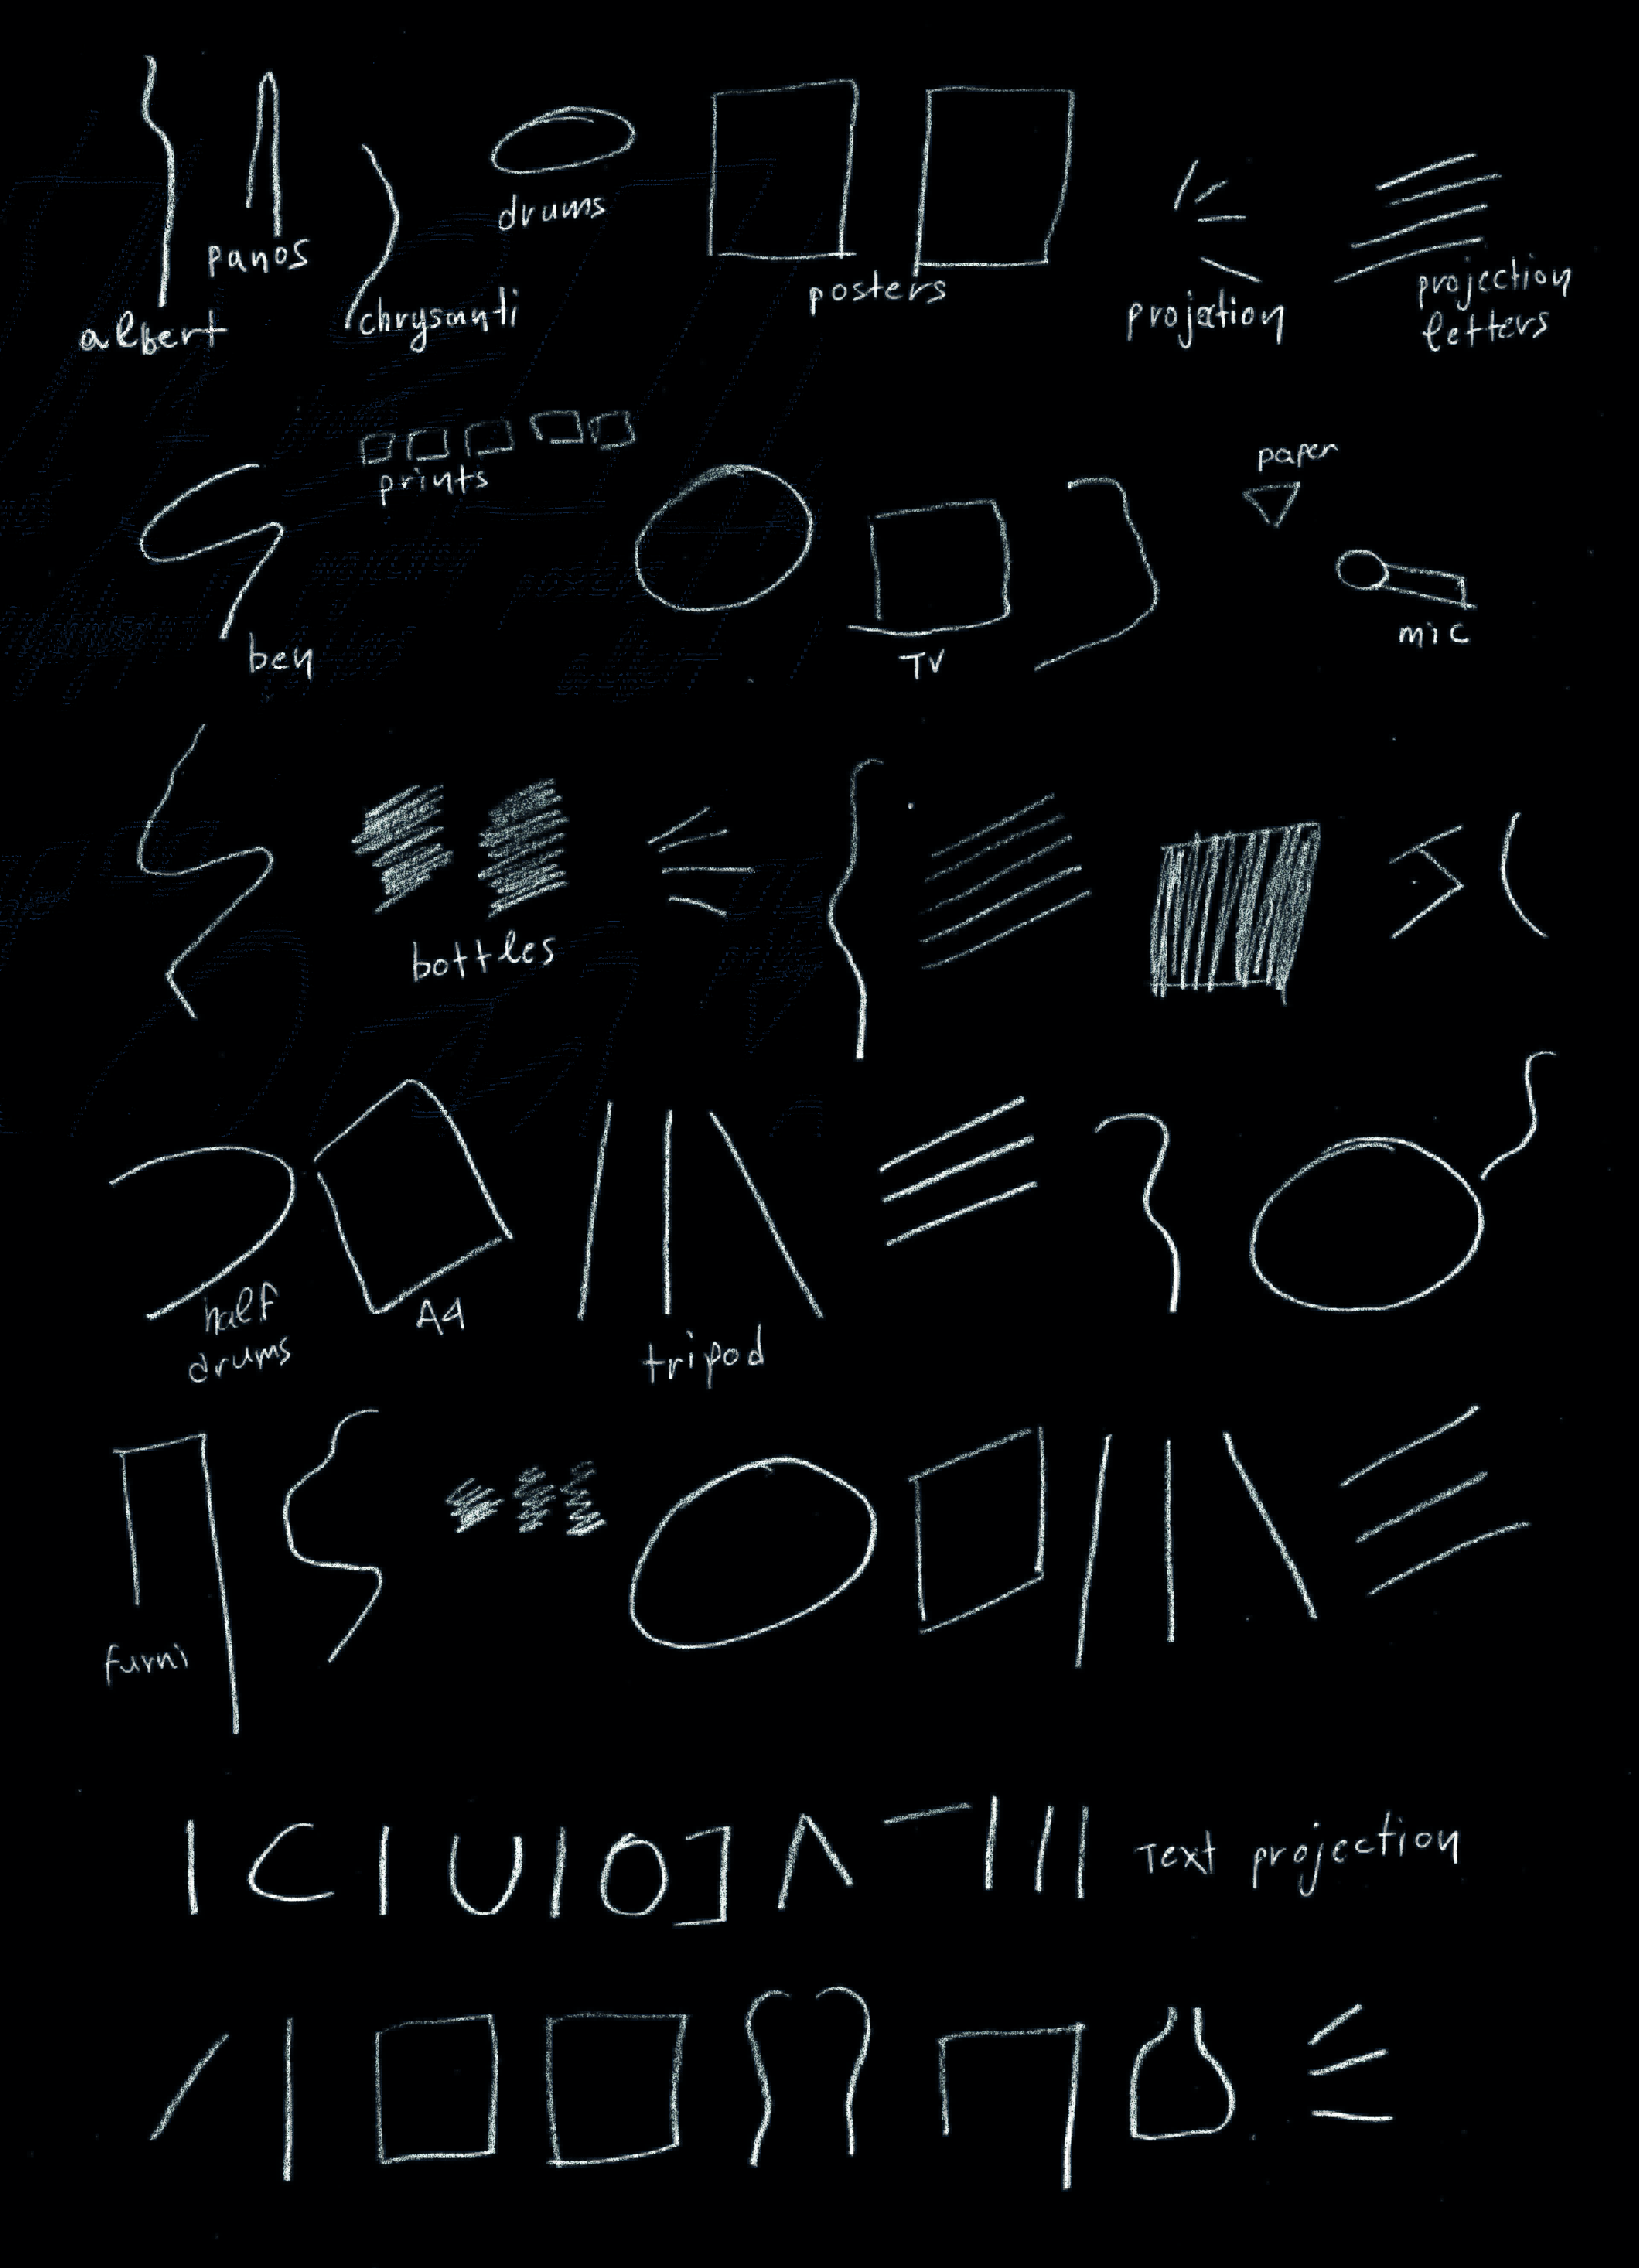 albert
panos
chrysanti
drums
posters
projection
projection
letters
prints
ben
TV
paper
mic
bottles
half
drums
A4
tripod
furni
Text projection